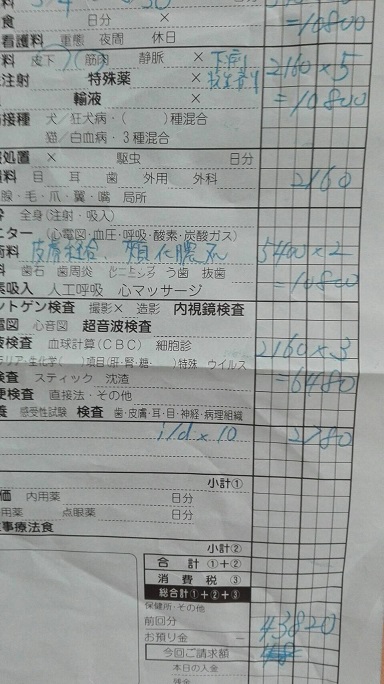 料 3 4 × 50
食 日分 × =10800
看護料 重態 夜間 休日
料 皮下 筋肉 静脈 × 下痢 2160×5
注射 特殊薬 × 抗生剤
輸液 × =10800
接種 犬/狂犬病・( )種混合
猫/白血病・3種混合
処置 × 駆虫 日分
料 目 耳 歯 外用 外科 2160
腺・毛・爪・翼・嘴 局所
全身(注射・吸入)
ニター (心電図・血圧・呼吸・酸素・炭酸ガス)
術料 皮膚縫合 頬化膿 5400×2
料 歯石 歯周炎 う歯 抜歯 =10800
素吸入 人工呼吸 心マッサージ
ントゲン検査 撮影× 造影 内視鏡検査
電図 心音図 超音波検査
液検査 血球計算(CBC) 細胞診 2160×3
ラリア・生化学( )項目(肝・腎・糖・ )特殊 ウイルス
検査 スティック 沈渣 =6480
便検査 直接法・その他
養 感受性試験 検査 歯・皮膚・耳・目・神経・病理組織
i/d×10 2780
小計①
価 内用薬 日分
用薬 点眼薬 日分
事療法食
小計②
合計①+②
消費税③
総合計①+②+③
保健所・その他
前回分 43820
お預り金 −
今回ご請求額
本日の入金
残金